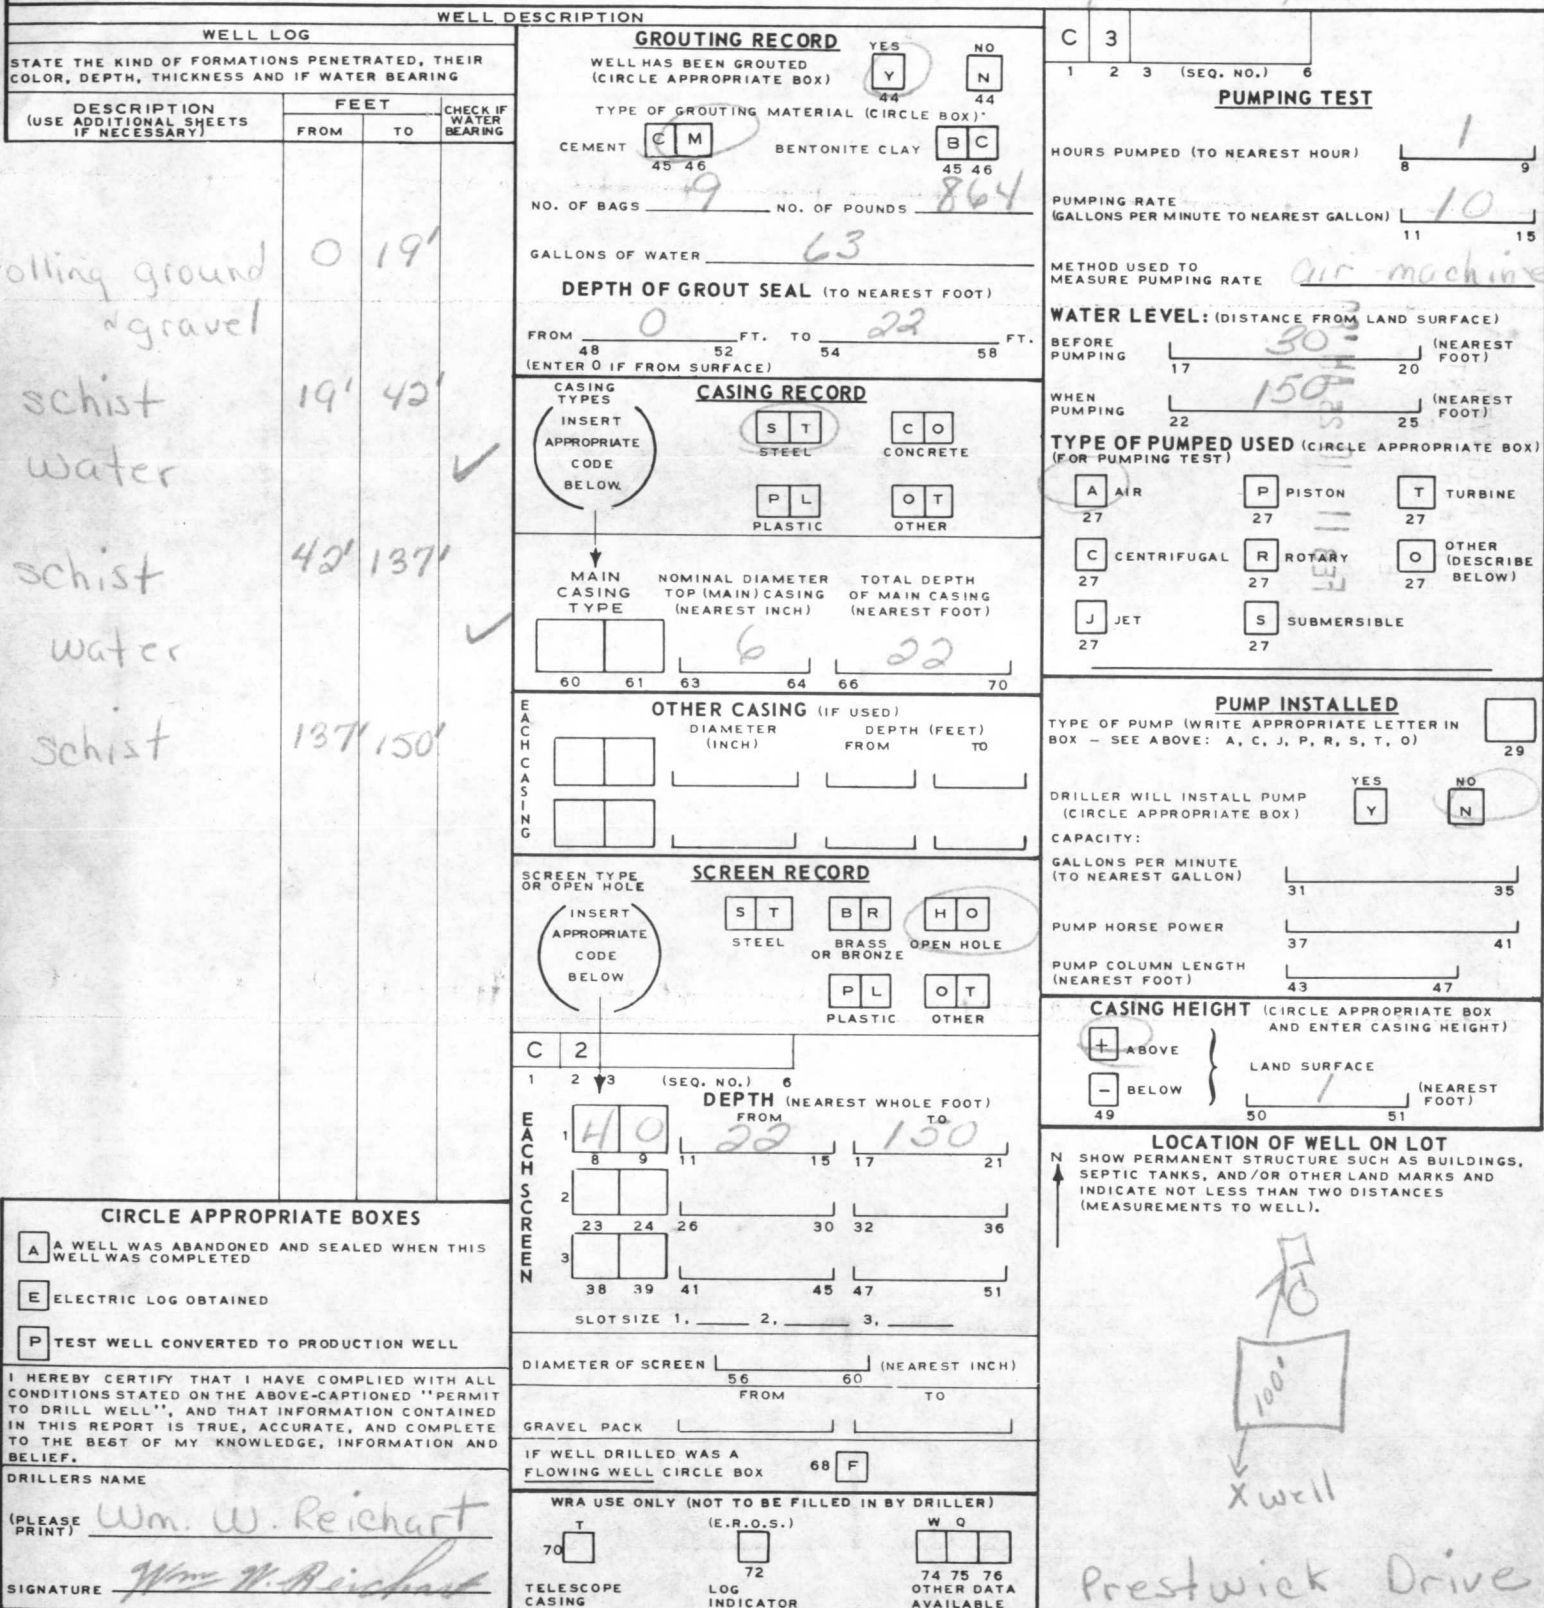 WELL DESCRIPTION
WELL LOG
STATE THE KIND OF FORMATIONS PENETRATED, THEIR
COLOR, DEPTH, THICKNESS AND IF WATER BEARING
DESCRIPTION
(USE ADDITIONAL SHEETS
IF NECESSARY)
FEET
FROM TO
CHECK IF
WATER
BEARING
olling ground 0 19'
gravel
schist 19' 42'
water ✓
schist 42' 137'
water ✓
schist 137' 150'
CIRCLE APPROPRIATE BOXES
A A WELL WAS ABANDONED AND SEALED WHEN THIS
WELL WAS COMPLETED
E ELECTRIC LOG OBTAINED
P TEST WELL CONVERTED TO PRODUCTION WELL
I HEREBY CERTIFY THAT I HAVE COMPLIED WITH ALL
CONDITIONS STATED ON THE ABOVE-CAPTIONED "PERMIT
TO DRILL WELL", AND THAT INFORMATION CONTAINED
IN THIS REPORT IS TRUE, ACCURATE, AND COMPLETE
TO THE BEST OF MY KNOWLEDGE, INFORMATION AND
BELIEF.
DRILLERS NAME
(PLEASE
PRINT) Wm. W. Reichart
SIGNATURE Wm W. Reichart
GROUTING RECORD
WELL HAS BEEN GROUTED
(CIRCLE APPROPRIATE BOX)
YES NO
Y N
44 44
TYPE OF GROUTING MATERIAL (CIRCLE BOX)
CEMENT C M BENTONITE CLAY B C
45 46 45 46
NO. OF BAGS 9 NO. OF POUNDS 864
GALLONS OF WATER 63
DEPTH OF GROUT SEAL (TO NEAREST FOOT)
FROM 0 FT. TO 22 FT.
48 52 54 58
(ENTER 0 IF FROM SURFACE)
CASING
TYPES
INSERT
APPROPRIATE
CODE
BELOW
CASING RECORD
S T C O
STEEL CONCRETE
P L O T
PLASTIC OTHER
MAIN
CASING
TYPE
NOMINAL DIAMETER
TOP (MAIN) CASING
(NEAREST INCH)
TOTAL DEPTH
OF MAIN CASING
(NEAREST FOOT)
6 22
60 61 63 64 66 70
EACH CASING
OTHER CASING (IF USED)
DIAMETER
(INCH)
DEPTH (FEET)
FROM TO
SCREEN TYPE
OR OPEN HOLE
INSERT
APPROPRIATE
CODE
BELOW
SCREEN RECORD
S T B R H O
STEEL BRASS
OR BRONZE OPEN HOLE
P L O T
PLASTIC OTHER
C 2
1 2 3 (SEQ. NO.) 6
EACH SCREEN
DEPTH (NEAREST WHOLE FOOT)
FROM TO
1 H O 22 150
8 9 11 15 17 21
2
23 24 26 30 32 36
3
38 39 41 45 47 51
SLOT SIZE 1, 2, 3,
DIAMETER OF SCREEN (NEAREST INCH)
56 60
FROM TO
GRAVEL PACK
IF WELL DRILLED WAS A
FLOWING WELL CIRCLE BOX 68 F
WRA USE ONLY (NOT TO BE FILLED IN BY DRILLER)
T (E.R.O.S.) W Q
70 72 74 75 76
TELESCOPE
CASING
LOG
INDICATOR
OTHER DATA
AVAILABLE
C 3
1 2 3 (SEQ. NO.) 6
PUMPING TEST
HOURS PUMPED (TO NEAREST HOUR) 1
8 9
PUMPING RATE
(GALLONS PER MINUTE TO NEAREST GALLON) 10
11 15
METHOD USED TO
MEASURE PUMPING RATE air machine
WATER LEVEL: (DISTANCE FROM LAND SURFACE)
BEFORE
PUMPING 30 (NEAREST
FOOT)
17 20
WHEN
PUMPING 150 (NEAREST
FOOT)
22 25
TYPE OF PUMPED USED (CIRCLE APPROPRIATE BOX)
(FOR PUMPING TEST)
A AIR P PISTON T TURBINE
27 27 27
C CENTRIFUGAL R ROTARY O OTHER
(DESCRIBE
BELOW)
27 27 27
J JET S SUBMERSIBLE
27 27
FEB 11 11
PUMP INSTALLED
TYPE OF PUMP (WRITE APPROPRIATE LETTER IN
BOX - SEE ABOVE: A, C, J, P, R, S, T, O)
29
DRILLER WILL INSTALL PUMP
(CIRCLE APPROPRIATE BOX)
YES NO
Y N
CAPACITY:
GALLONS PER MINUTE
(TO NEAREST GALLON)
31 35
PUMP HORSE POWER
37 41
PUMP COLUMN LENGTH
(NEAREST FOOT)
43 47
CASING HEIGHT (CIRCLE APPROPRIATE BOX
AND ENTER CASING HEIGHT)
+ ABOVE
- BELOW
49
LAND SURFACE
1 (NEAREST
FOOT)
50 51
LOCATION OF WELL ON LOT
N SHOW PERMANENT STRUCTURE SUCH AS BUILDINGS,
SEPTIC TANKS, AND/OR OTHER LAND MARKS AND
INDICATE NOT LESS THAN TWO DISTANCES
(MEASUREMENTS TO WELL).
100'
X well
Prestwick Drive